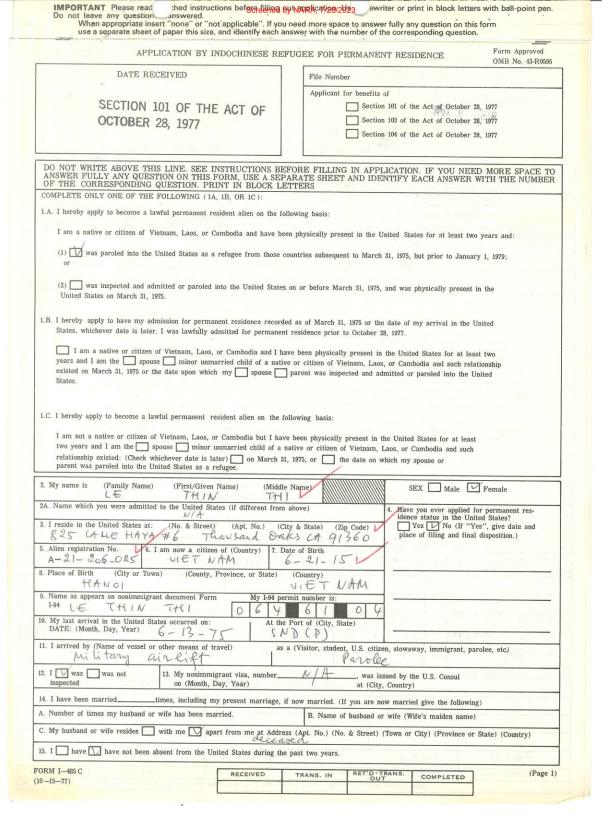 IMPORTANT Please read
ched instructions before filling out application. Use
ewriter or print in block letters with ball-point pen.
Screened by NARA, 7/28/2023
Do not leave any question
answered.
When appropriate insert "none" or "not applicable". If you need more space to answer fully any question on this form
use a separate sheet of paper this size, and identify each answer with the number of the corresponding question.
APPLICATION BY INDOCHINESE REFUGEE FOR PERMANENT RESIDENCE
Form Approved
OMB No. 43-R0595
DATE RECEIVED
SECTION 101 OF THE ACT OF
OCTOBER 28, 1977
File Number
Applicant for benefits of
Section 101 of the Act of October 28, 1977
Section 103 of the Act of October 28, 1977
Section 104 of the Act of October 28, 1977
DO NOT WRITE ABOVE THIS LINE. SEE INSTRUCTIONS BEFORE FILLING IN APPLICATION. IF YOU NEED MORE SPACE TO
ANSWER FULLY ANY QUESTION ON THIS FORM, USE A SEPARATE SHEET AND IDENTIFY EACH ANSWER WITH THE NUMBER
OF THE CORRESPONDING QUESTION. PRINT IN BLOCK LETTERS
COMPLETE ONLY ONE OF THE FOLLOWING (1A, 1B, OR 1C):
1.A. I hereby apply to become a lawful permanent resident alien on the following basis:
I am a native or citizen of Vietnam, Laos, or Cambodia and have been physically present in the United States for at least two years and:
(1) was paroled into the United States as a refugee from those countries subsequent to March 31, 1975, but prior to January 1, 1979;
or
(2) was inspected and admitted or paroled into the United States on or before March 31, 1975, and was physically present in the
United States on March 31, 1975.
1.B. I hereby apply to have my admission for permanent residence recorded as of March 31, 1975 or the date of my arrival in the United
States, whichever date is later. I was lawfully admitted for permanent residence prior to October 28, 1977.
I am a native or citizen of Vietnam, Laos, or Cambodia and I have been physically present in the United States for at least two
years and I am the spouse minor unmarried child of a native or citizen of Vietnam, Laos, or Cambodia and such relationship
existed on March 31, 1975 or the date upon which my spouse parent was inspected and admitted or paroled into the United
States.
1.C. I hereby apply to become a lawful permanent resident alien on the following basis:
I am not a native or citizen of Vietnam, Laos, or Cambodia but I have been physically present in the United States for at least
two years and I am the spouse minor unmarried child of a native or citizen of Vietnam, Laos, or Cambodia and such
relationship existed: (Check whichever date is later) on March 31, 1975, or the date on which my spouse or
parent was paroled into the United States as a refugee.
2. My name is (Family Name) (First/Given Name) (Middle Name)
LE THIN THI
SEX Male Female
2A. Name which you were admitted to the United States (if different from above)
N/A
4. Have you ever applied for permanent res-
idence status in the United States?
Yes No (If "Yes", give date and
place of filing and final disposition.)
3. I reside in the United States at: (No. & Street) (Apt. No.) (City & State) (Zip Code)
825 CALLE HAYA #6 Thousand Oaks CA 91360
5. Alien registration No. 6. I am now a citizen of (Country) 7. Date of Birth
A-21-206-025 VIET NAM 6-21-15
8. Place of Birth (City or Town) (County, Province, or State) (Country)
HANOI VIET NAM
9. Name as appears on nonimmigrant document Form My I-94 permit number is:
I-94 LE THIN THI 064 61 04
10. My last arrival in the United States occurred on: At the Port of (City, State)
DATE: (Month, Day, Year) 6-13-75 SND (P)
11. I arrived by (Name of vessel or other means of travel) as a (Visitor, student, U.S. citizen, stowaway, immigrant, parolee, etc.)
Military airlift Parolee
12. I was was not
inspected
13. My nonimmigrant visa, number N/A, was issued by the U.S. Consul
on (Month, Day, Year) at (City, Country)
14. I have been married times, including my present marriage, if now married. (If you are now married give the following)
A. Number of times my husband or wife has been married. B. Name of husband or wife (Wife's maiden name)
C. My husband or wife resides with me apart from me at Address (Apt. No.) (No. & Street) (Town or City) (Province or State) (Country)
deceased
15. I have have not been absent from the United States during the past two years.
FORM I-485 C
(10-15-77)
RECEIVED TRANS. IN RET'D-TRANS. OUT COMPLETED
(Page 1)